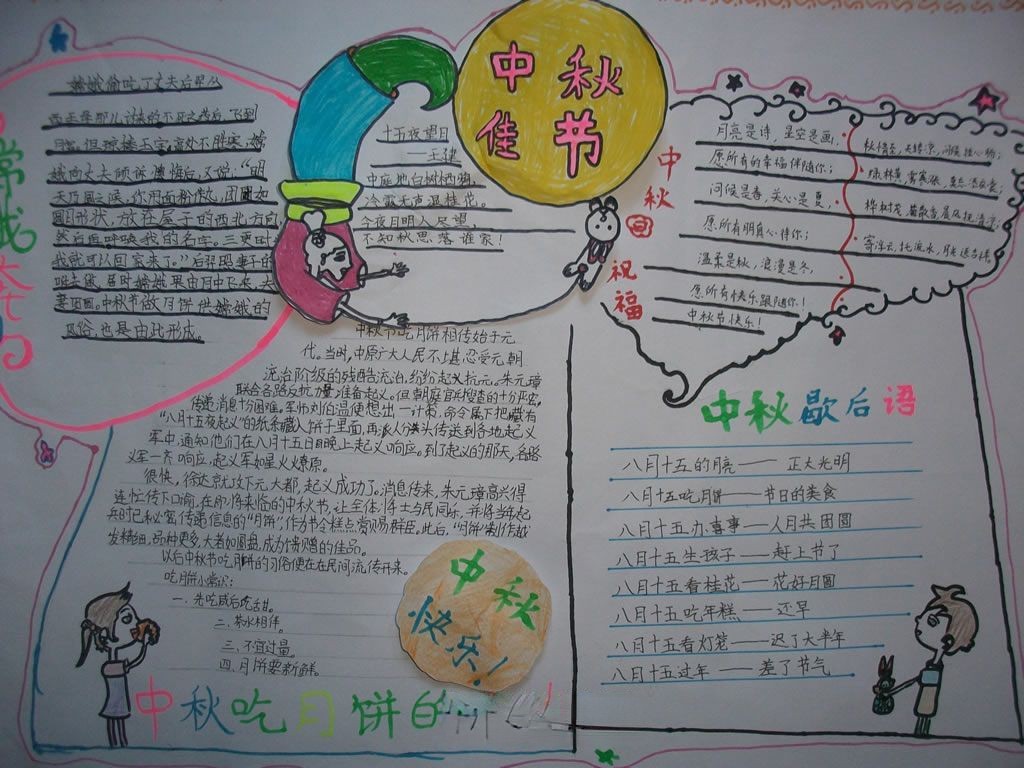 中秋
佳节
嫦娥偷吃了丈夫后羿从
西王母那儿讨来的不死之药后,飞到
月宫。但琼楼玉宇,高处不胜寒,嫦
娥向丈夫倾诉懊悔后,又说:“明
天乃月圆之候,你用面粉作丸,团团如
圆月形状,放在屋子的西北方向,
然后再呼唤我的名字。三更时
我就可以回家来了。”后羿照妻子的
届时嫦娥果由月中飞来,夫
妻团圆。中秋节做月饼供嫦娥的
风俗,也是由此形成。
十五夜望月
——王建
中庭地白树栖鸦,
冷露无声湿桂花。
今夜月明人尽望,
不知秋思落谁家!
中秋
祝福
月亮是诗,星空是画,
愿所有的幸福伴随你;
问候是春,关心是夏,
愿所有朋友真心待你;
温柔是秋,浪漫是冬,
愿所有快乐跟随你!
中秋节快乐!
秋悟至,天转凉,问候挂心肠;
寄浮云,托流水,
中秋节吃月饼相传始于元
代。当时,中原广大人民不堪忍受元朝
统治阶级的残酷统治,纷纷起义抗元。朱元璋
联合各路反抗力量准备起义。但朝庭官兵搜查的十分严密,
传递消息十分困难。军师刘伯温便想出一计策,命令属下把藏有
“八月十五夜起义”的纸条藏入饼子里面,再派人分头传送到各地起义
军中,通知他们在八月十五日晚上起义响应。到了起义的那天,各路
义军一齐响应,起义军如星火燎原。
很快,徐达就攻下元大都,起义成功了。消息传来,朱元璋高兴得
连忙传下口谕,在即将来临的中秋节,让全体将士与民同乐,并将当年起
兵时已秘密传递信息的“月饼”,作为节令糕点赏赐群臣。此后,“月饼”制作越
发精细,品种更多,大者如圆盘,成为馈赠的佳品。
以后中秋节吃月饼的习俗便在在民间流传开来。
吃月饼小常识:
一、先吃咸后吃甜。
二、茶水相伴。
三、不宜过量。
四、月饼要新鲜。
中秋
快乐!
中秋吃月饼的
中秋歇后语
八月十五的月亮——正大光明
八月十五吃月饼——节日的美食
八月十五办喜事——人月共团圆
八月十五生孩子——赶上节了
八月十五看桂花——花好月圆
八月十五吃年糕——还早
八月十五看灯笼——迟了大半年
八月十五过年——差了节气